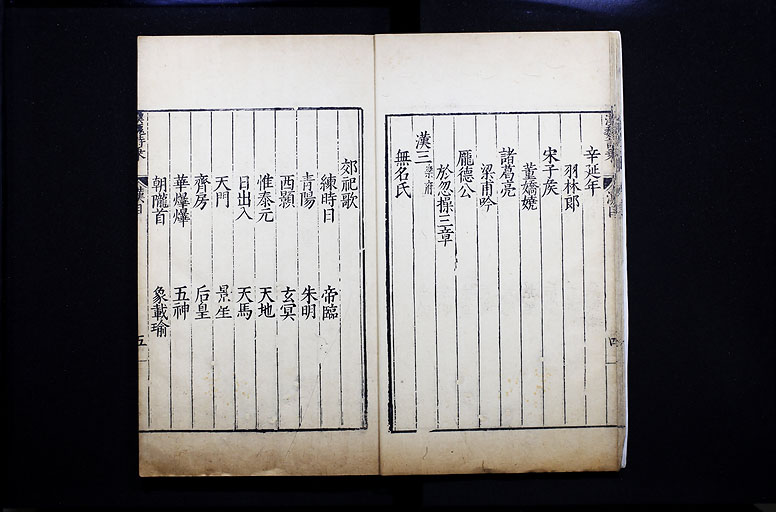 辛延年
羽林郎
宋子侯
董嬌嬈
諸葛亮
梁甫吟
龐德公
於忽操三章
漢三樂府
無名氏
郊祀歌
練時日 帝臨
青陽 朱明
西顥 玄冥
惟泰元 天地
日出入 天馬
天門 景星
齊房 后皇
華爗爗 五神
朝隴首 象載瑜
五